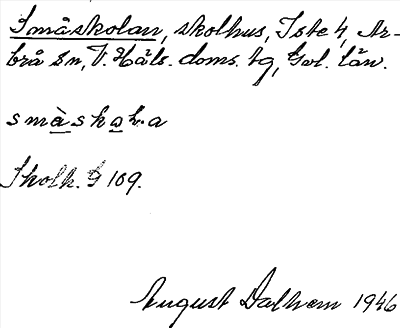 Småskolan, skolhus, Iste 4, Ar-
brå sn, V. Häls. doms. tg, Gvl. län.
småskɑ̀lɑ
Skolk. G 109.
August Dalhem 1946